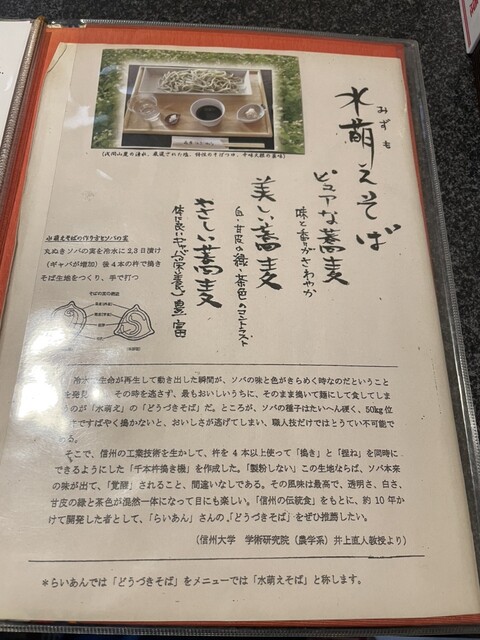 水萌えそば
みずも
ピュアな蕎麦
味と香りがさわやか
美しい蕎麦
白・甘皮の緑・茶色のコントラスト
やさしい蕎麦
体に良いギャバ(栄養)豊富
(浅間山麓の清水、厳選された塩、特性のそばつゆ、辛味大根の薬味)
水萌えそばの作り方とソバの実
丸ぬきソバの実を冷水に2,3日漬け
(ギャバが増加)後4本の杵で搗き
そば生地をつくり、手で打つ
そばの実の構造
冷水で生命が再生して動き出した瞬間が、ソバの味と色がきらめく時なのだということ
を発見 その時を逃さず、最もおいしいうちに、そのまま搗いて麺にして食してしま
うのが「水萌え」の「どうづきそば」だ。ところが、ソバの種子はたいへん硬く、50kg位
ですばやく搗かないと、おいしさが逃げてしまい、職人技だけではとうてい不可能で
ある。
そこで、信州の工業技術を生かして、杵を4本以上使って「搗き」と「捏ね」を同時に
できるようにした「千本杵搗き機」を作成した。「製粉しない」この生地ならば、ソバ本来
の味が出て、「覚醒」されること、間違いなしである。その風味は最高で、透明さ、白さ、
甘皮の緑と茶色が混然一体になって目にも楽しい。「信州の伝統食」をもとに、約10年か
けて開発した者として、「らいあん」さんの、「どうづきそば」をぜひ推薦したい。
(信州大学 学術研究院(農学系)井上直人教授より)
*らいあんでは「どうづきそば」をメニューでは「水萌えそば」と称します。